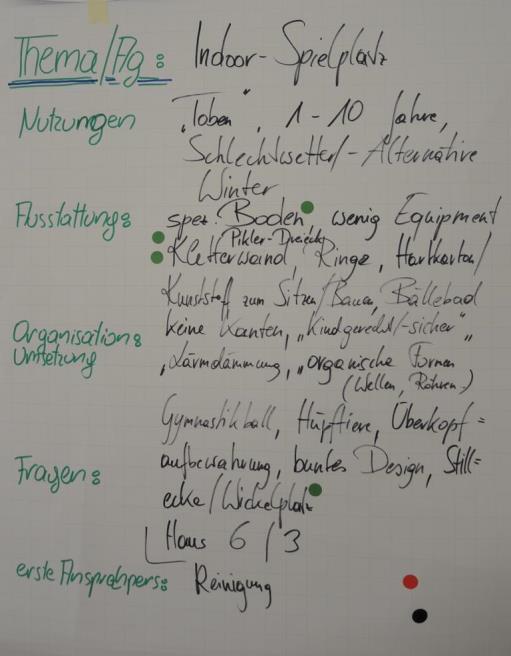 Thema/Ag: Indoor-Spielplatz
Nutzungen „Toben“, 1-10 Jahre,
Schlechtwetter/-Alternative
Winter
Ausstattung: spez. Boden, wenig Equipment
Pikler-Dreieck
Kletterwand, Ringe, Hartkarton/
Kunststoff zum Sitzen/Bauen, Bällebad
Organisation: keine Kanten, „Kindgerecht/-sicher“,
Umsetzung Lärmdämmung, „organische Formen
(Wellen, Röhren-)
Gymnastikball, Hüpftiere, Überkopf=
aufbewahrung, buntes Design, Still=
Fragen: ecke/Wickelplatz
Haus 6/3
erste Ansprechpers: Reinigung